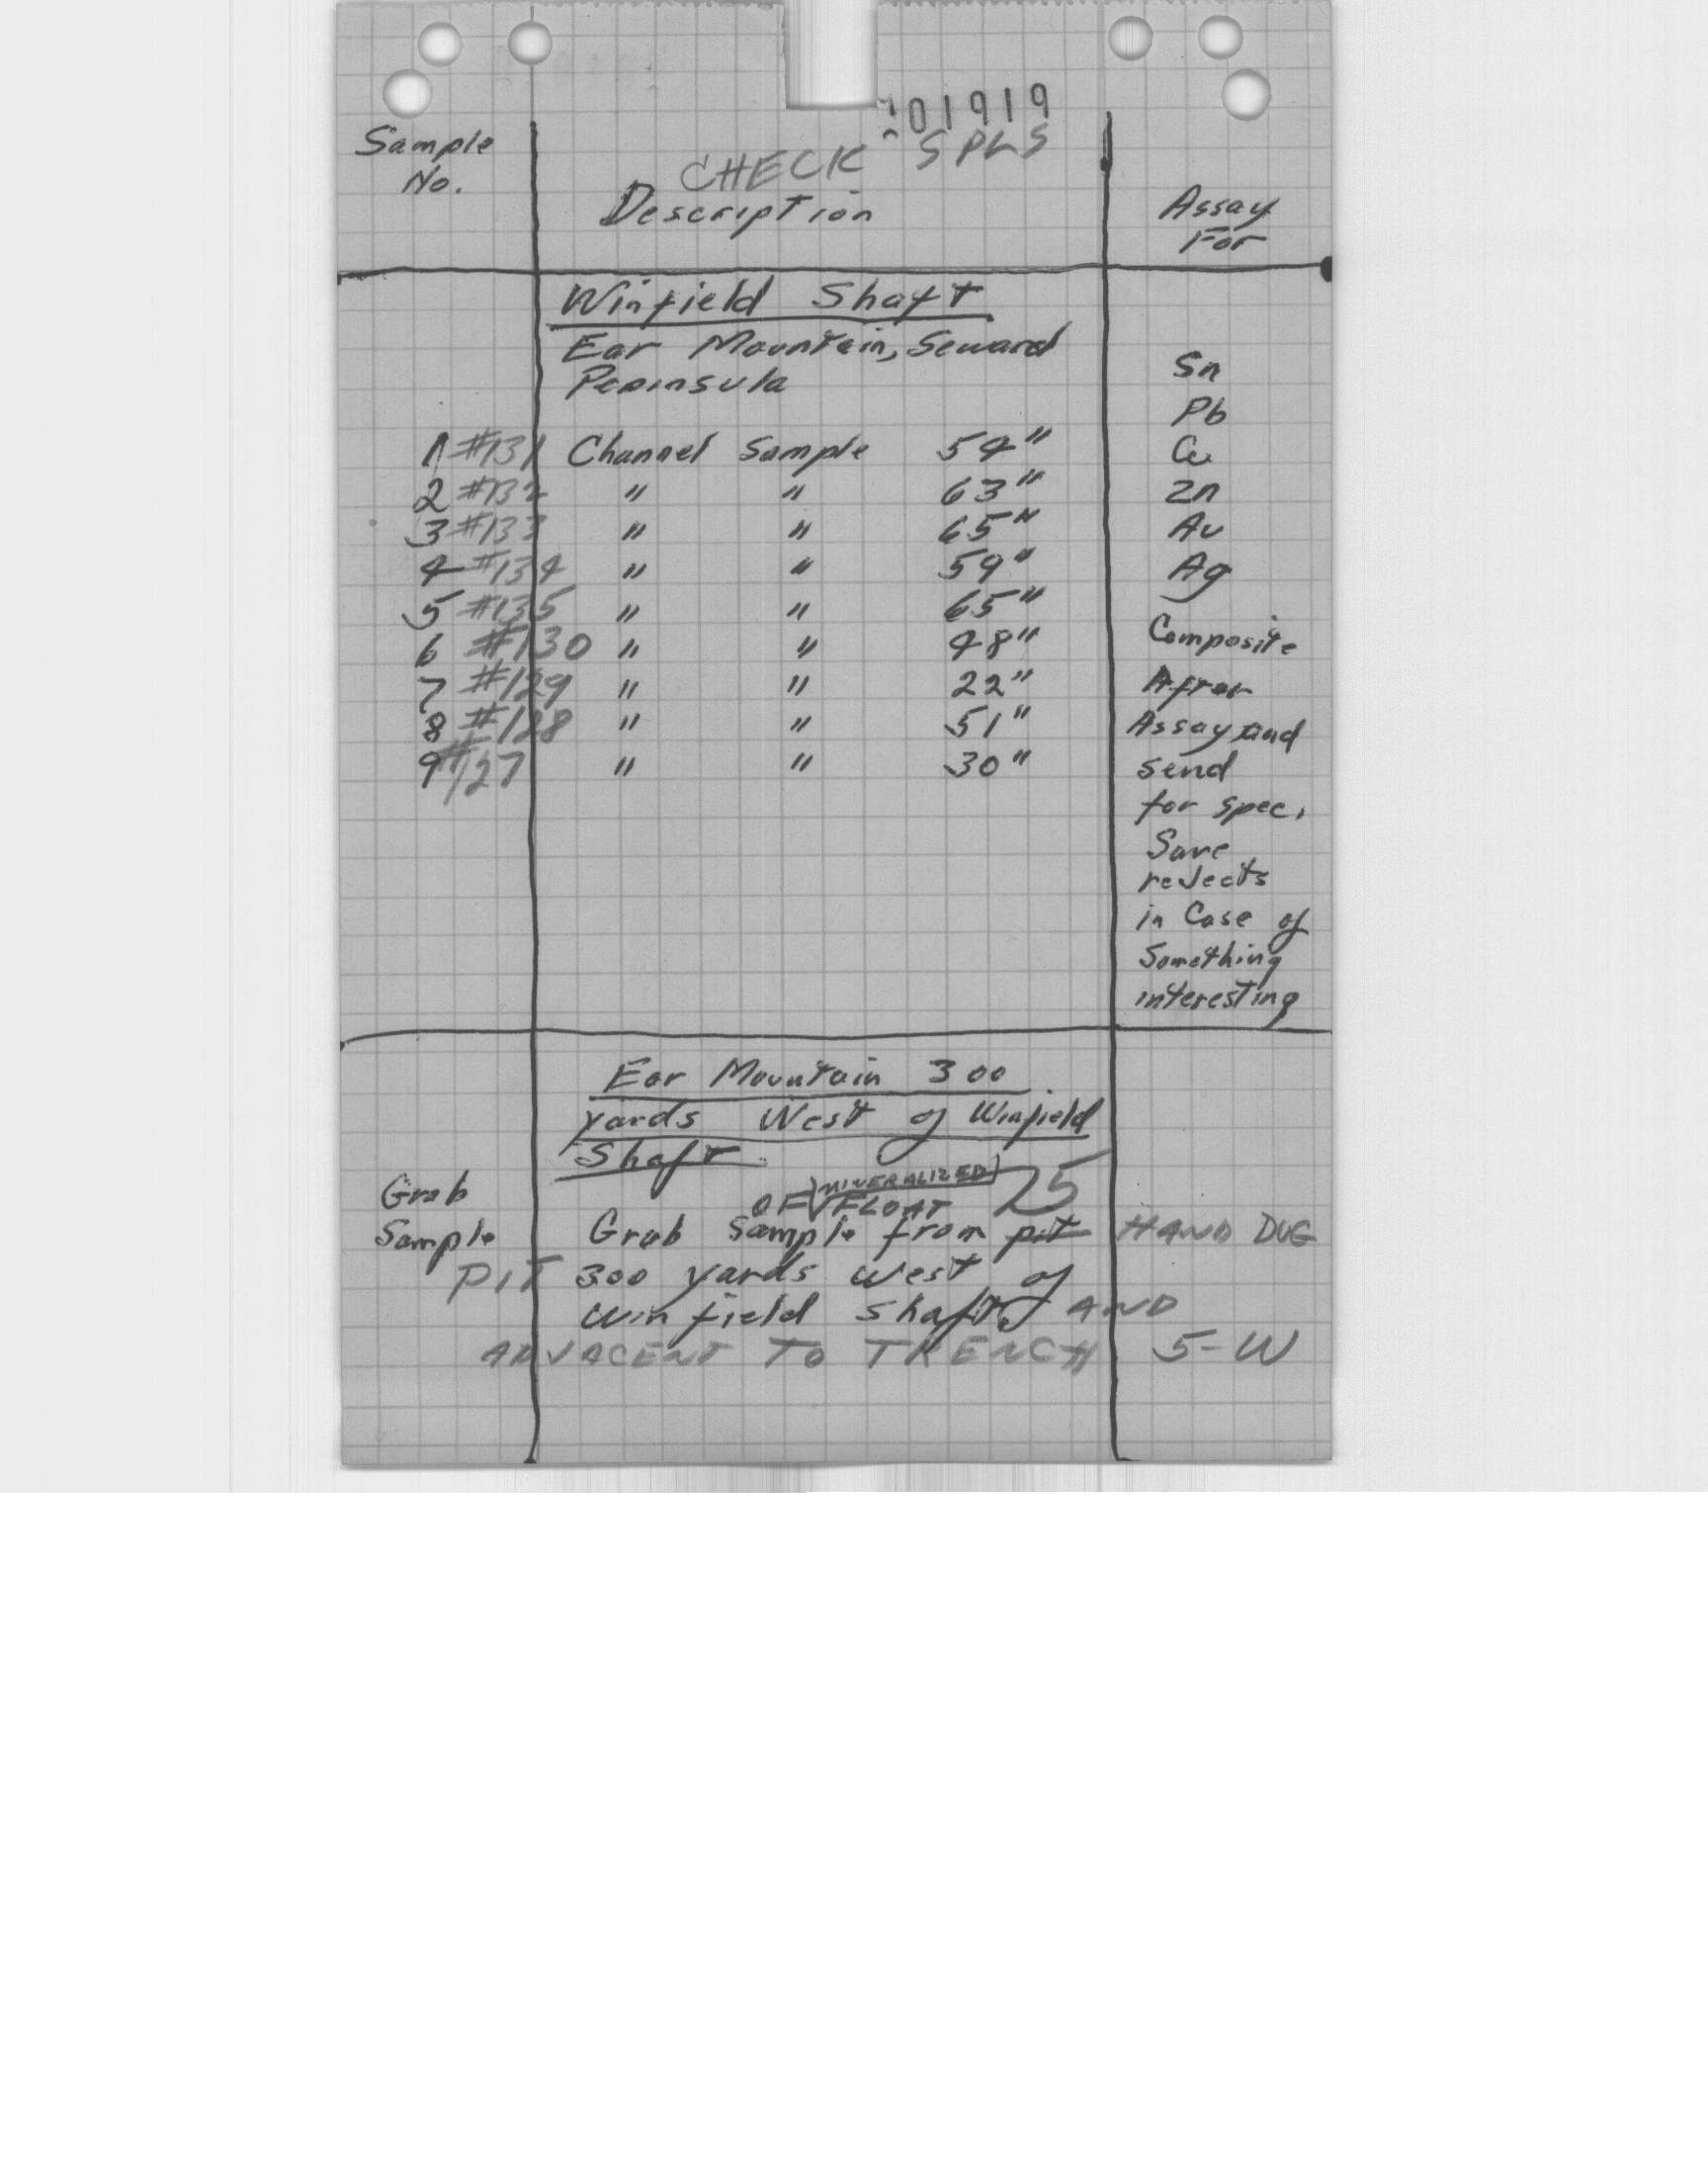 01919
CHECK SPLS
Sample No.
Description
Assay For
Winfield Shaft
Ear Mountain, Seward
Peninsula
Sn
Pb
1 #131 Channel Sample 54" Cu
2 #132 " " 63" Zn
3 #133 " " 65" Au
4 #134 " " 59" Ag
5 #135 " " 65"
6 #130 " " 48" Composite
7 #129 " " 22" After
8 #128 " " 51" Assay and
9 #127 " " 30" send
for spec.
Save
rejects
in Case of
Something
interesting
Ear Mountain 300
yards West of Winfield
Shaft
OF MINERALIZED FLOAT 25
Grab
Sample Grab Sample from pit HAND DUG
PIT 300 yards West of
Winfield Shaft, AND
ADJACENT TO TRENCH 5-W